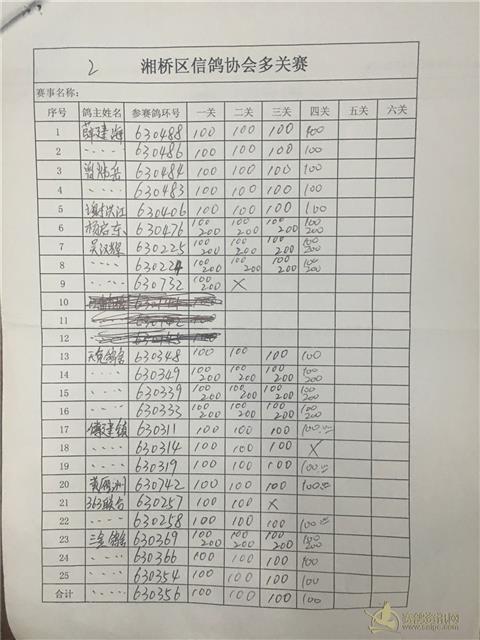 2
湘桥区信鸽协会多关赛
赛事名称:
序号 鸽主姓名 参赛鸽环号 一关 二关 三关 四关 五关 六关
1 薛建海 630488 100 100 100 100
2 ‥‥ 630486 100 100 100 100
3 630484 100 100 100 100
4 ‥‥ 630483 100 100 100 100
5 洪江 630406 100 100 100 100
6 杨启东 630476 100 200 100 200 100 200 100 200
7 吴汉辉 630225 100 200 100 200 100 200 100 200
8 ‥‥ 630224 100 200 100 200 100 200 100 200
9 ‥‥ 630732 100 200 ×
10
11
12
13 630348 100 100 100 100
14 ‥‥ 630349 100 200 100 200 100 200 100 200
15 ‥‥ 630339 100 200 100 200 100 200 100 200
16 ‥‥ 630333 100 200 100 200 100 200 100 200
17 建镇 630311 100 100 100 100
18 ‥‥ 630314 100 100 100 ×
19 ‥‥ 630319 100 100 100 100
20 洲 630742 100 100 100 100
21 363联合 630257 100 100 ×
22 ‥‥ 630258 100 100 100 100
23 630369 100 200 100 200 100 200 100 200
24 ‥‥ 630366 100 100 100 100
25 ‥‥ 630354 100 100 100 100
合计 ‥‥ 630356 100 100 100 100
赛鸽资讯网
www.saige.com